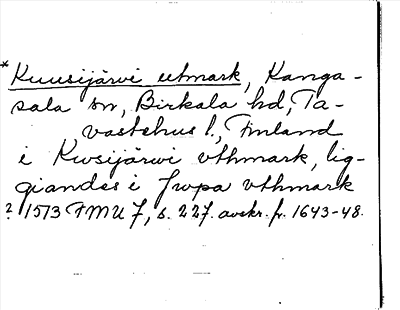 * Kuusijärvi utmark, Kanga-
sala sn, Birkala hd, Ta-
vastehus l., Finland
i Kwsijärwi vthmark, lig-
giandes i Jwpa vthmark
? 1513 FMU 7, s. 227. avskr. fr. 1643-48.